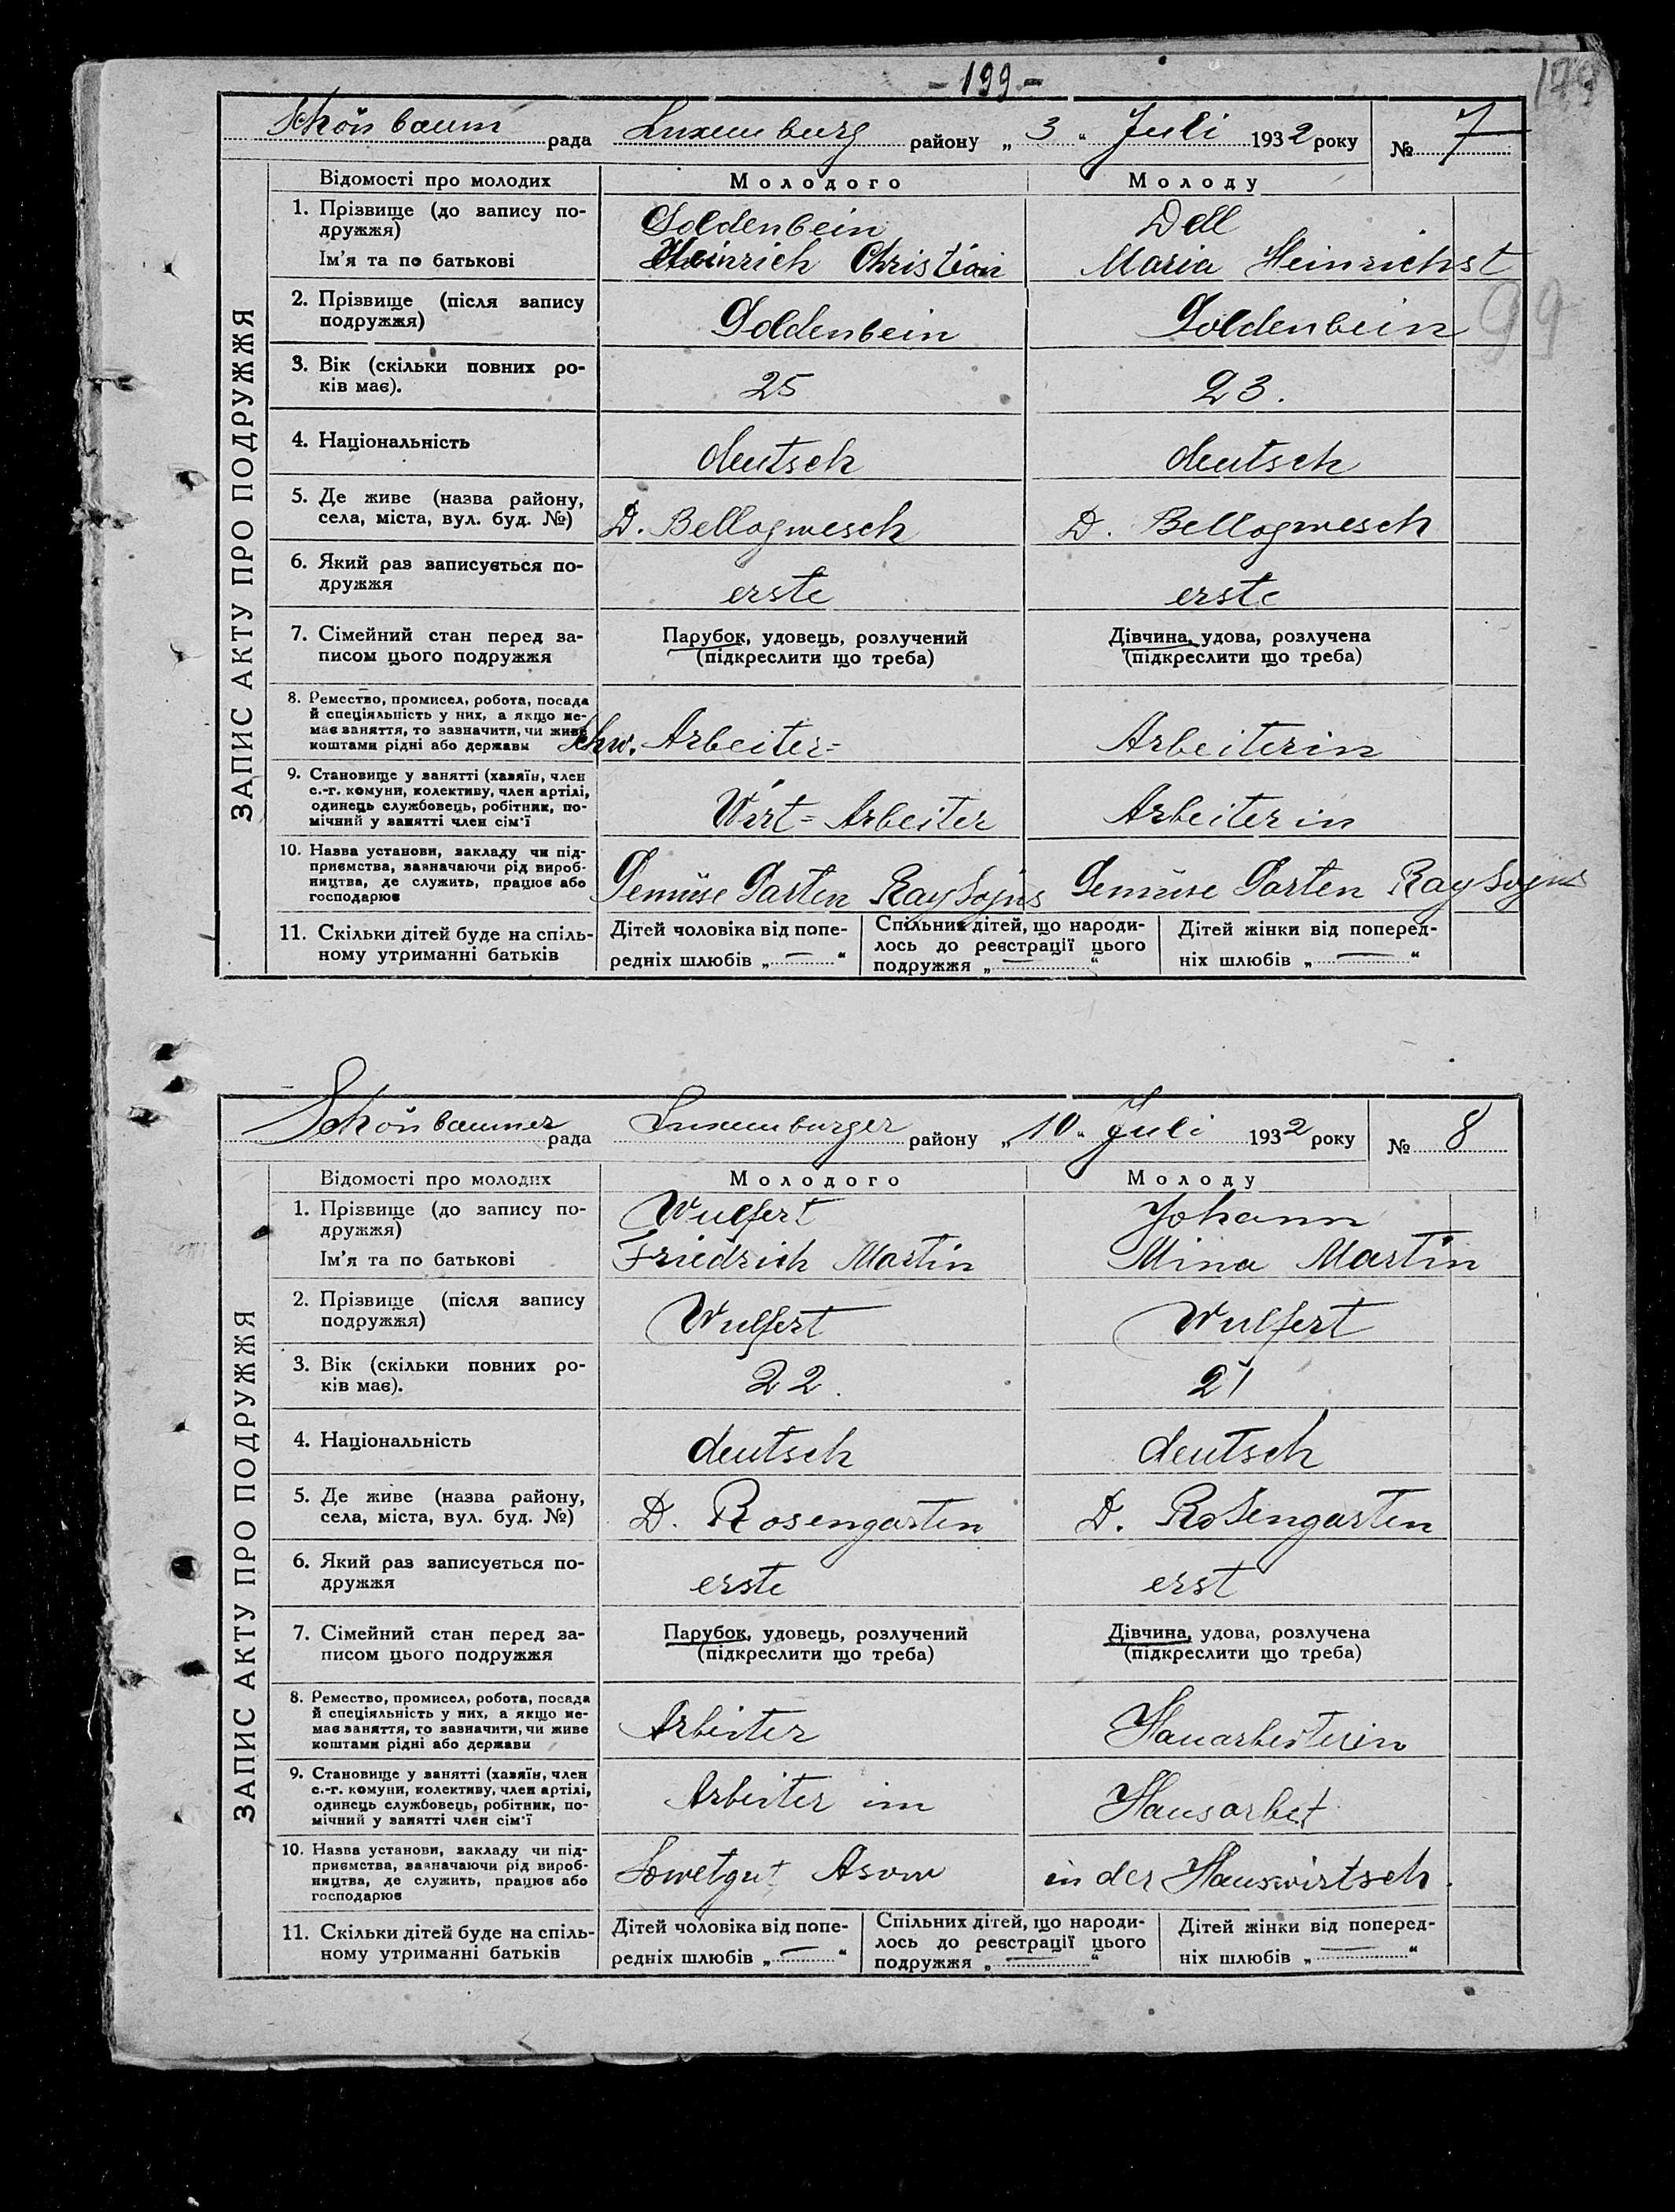 - 199 -
Schönbaum рада Luxemburg району „ 3 " Juli 1932 року № 7
Відомості про молодих Молодого Молоду
ЗАПИС АКТУ ПРО ПОДРУЖЖЯ
1. Прізвище (до запису по- Goldenbein Dell
дружжя)
Ім'я та по батькові Heinrich Christian Maria Heinrichst
99
2. Прізвище (після запису
подружжя) Goldenbein Goldenbein
3. Вік (скільки повних ро-
ків має). 25 23.
4. Національність deutsch deutsch
5. Де живе (назва району,
села, міста, вул. буд. №) D. Bellogwesch D. Bellogwesch
6. Який раз записується по-
дружжя erste erste
7. Сімейний стан перед за- Парубок, удовець, розлучений Дівчина, удова, розлучена
писом цього подружжя (підкреслити що треба) (підкреслити що треба)
8. Ремество, промисел, робота, посада
й спеціяльність у них, а якщо не-
має заняття, то зазначити, чи живе
коштами рідні або держави Schw. Arbeiter= Arbeiterin
9. Становище у занятті (хазяїн, член
с.-г. комуни, колективу, член артілі,
одинець службовець, робітник, по-
мічний у занятті член сім'ї Wirt=Arbeiter Arbeiterin
10. Назва установи, закладу чи під-
приємства, зазначаючи рід вироб-
ництва, де служить, працює або
господарює Gemüse Garten Gemüse Garten
11. Скільки дітей буде на спіль- Дітей чоловіка від попе- Спільних дітей, що народи- Дітей жінки від поперед-
ному утриманні батьків редніх шлюбів „ — " лось до реєстрації цього ніх шлюбів „ — "
подружжя „ — "
Schönbaumer рада Luxemburger району „ 10 " Juli 1932 року № 8
Відомості про молодих Молодого Молоду
ЗАПИС АКТУ ПРО ПОДРУЖЖЯ
1. Прізвище (до запису по- Wulfert Johann
дружжя)
Ім'я та по батькові Friedrich Martin Mina Martin
2. Прізвище (після запису
подружжя) Wulfert Wulfert
3. Вік (скільки повних ро-
ків має). 22. 21
4. Національність deutsch deutsch
5. Де живе (назва району,
села, міста, вул. буд. №) D. Rosengarten D. Rosengarten
6. Який раз записується по-
дружжя erste erst
7. Сімейний стан перед за- Парубок, удовець, розлучений Дівчина, удова, розлучена
писом цього подружжя (підкреслити що треба) (підкреслити що треба)
8. Ремество, промисел, робота, посада
й спеціяльність у них, а якщо не-
має заняття, то зазначити, чи живе
коштами рідні або держави Arbeiter Hauarbeiterin
9. Становище у занятті (хазяїн, член
с.-г. комуни, колективу, член артілі,
одинець службовець, робітник, по-
мічний у занятті член сім'ї Arbeiter im Hausarbet
10. Назва установи, закладу чи під-
приємства, зазначаючи рід вироб-
ництва, де служить, працює або
господарює Sowetgut Asow in der Hauswirtsch.
11. Скільки дітей буде на спіль- Дітей чоловіка від попе- Спільних дітей, що народи- Дітей жінки від поперед-
ному утриманні батьків редніх шлюбів „ — " лось до реєстрації цього ніх шлюбів „ — "
подружжя „ — "